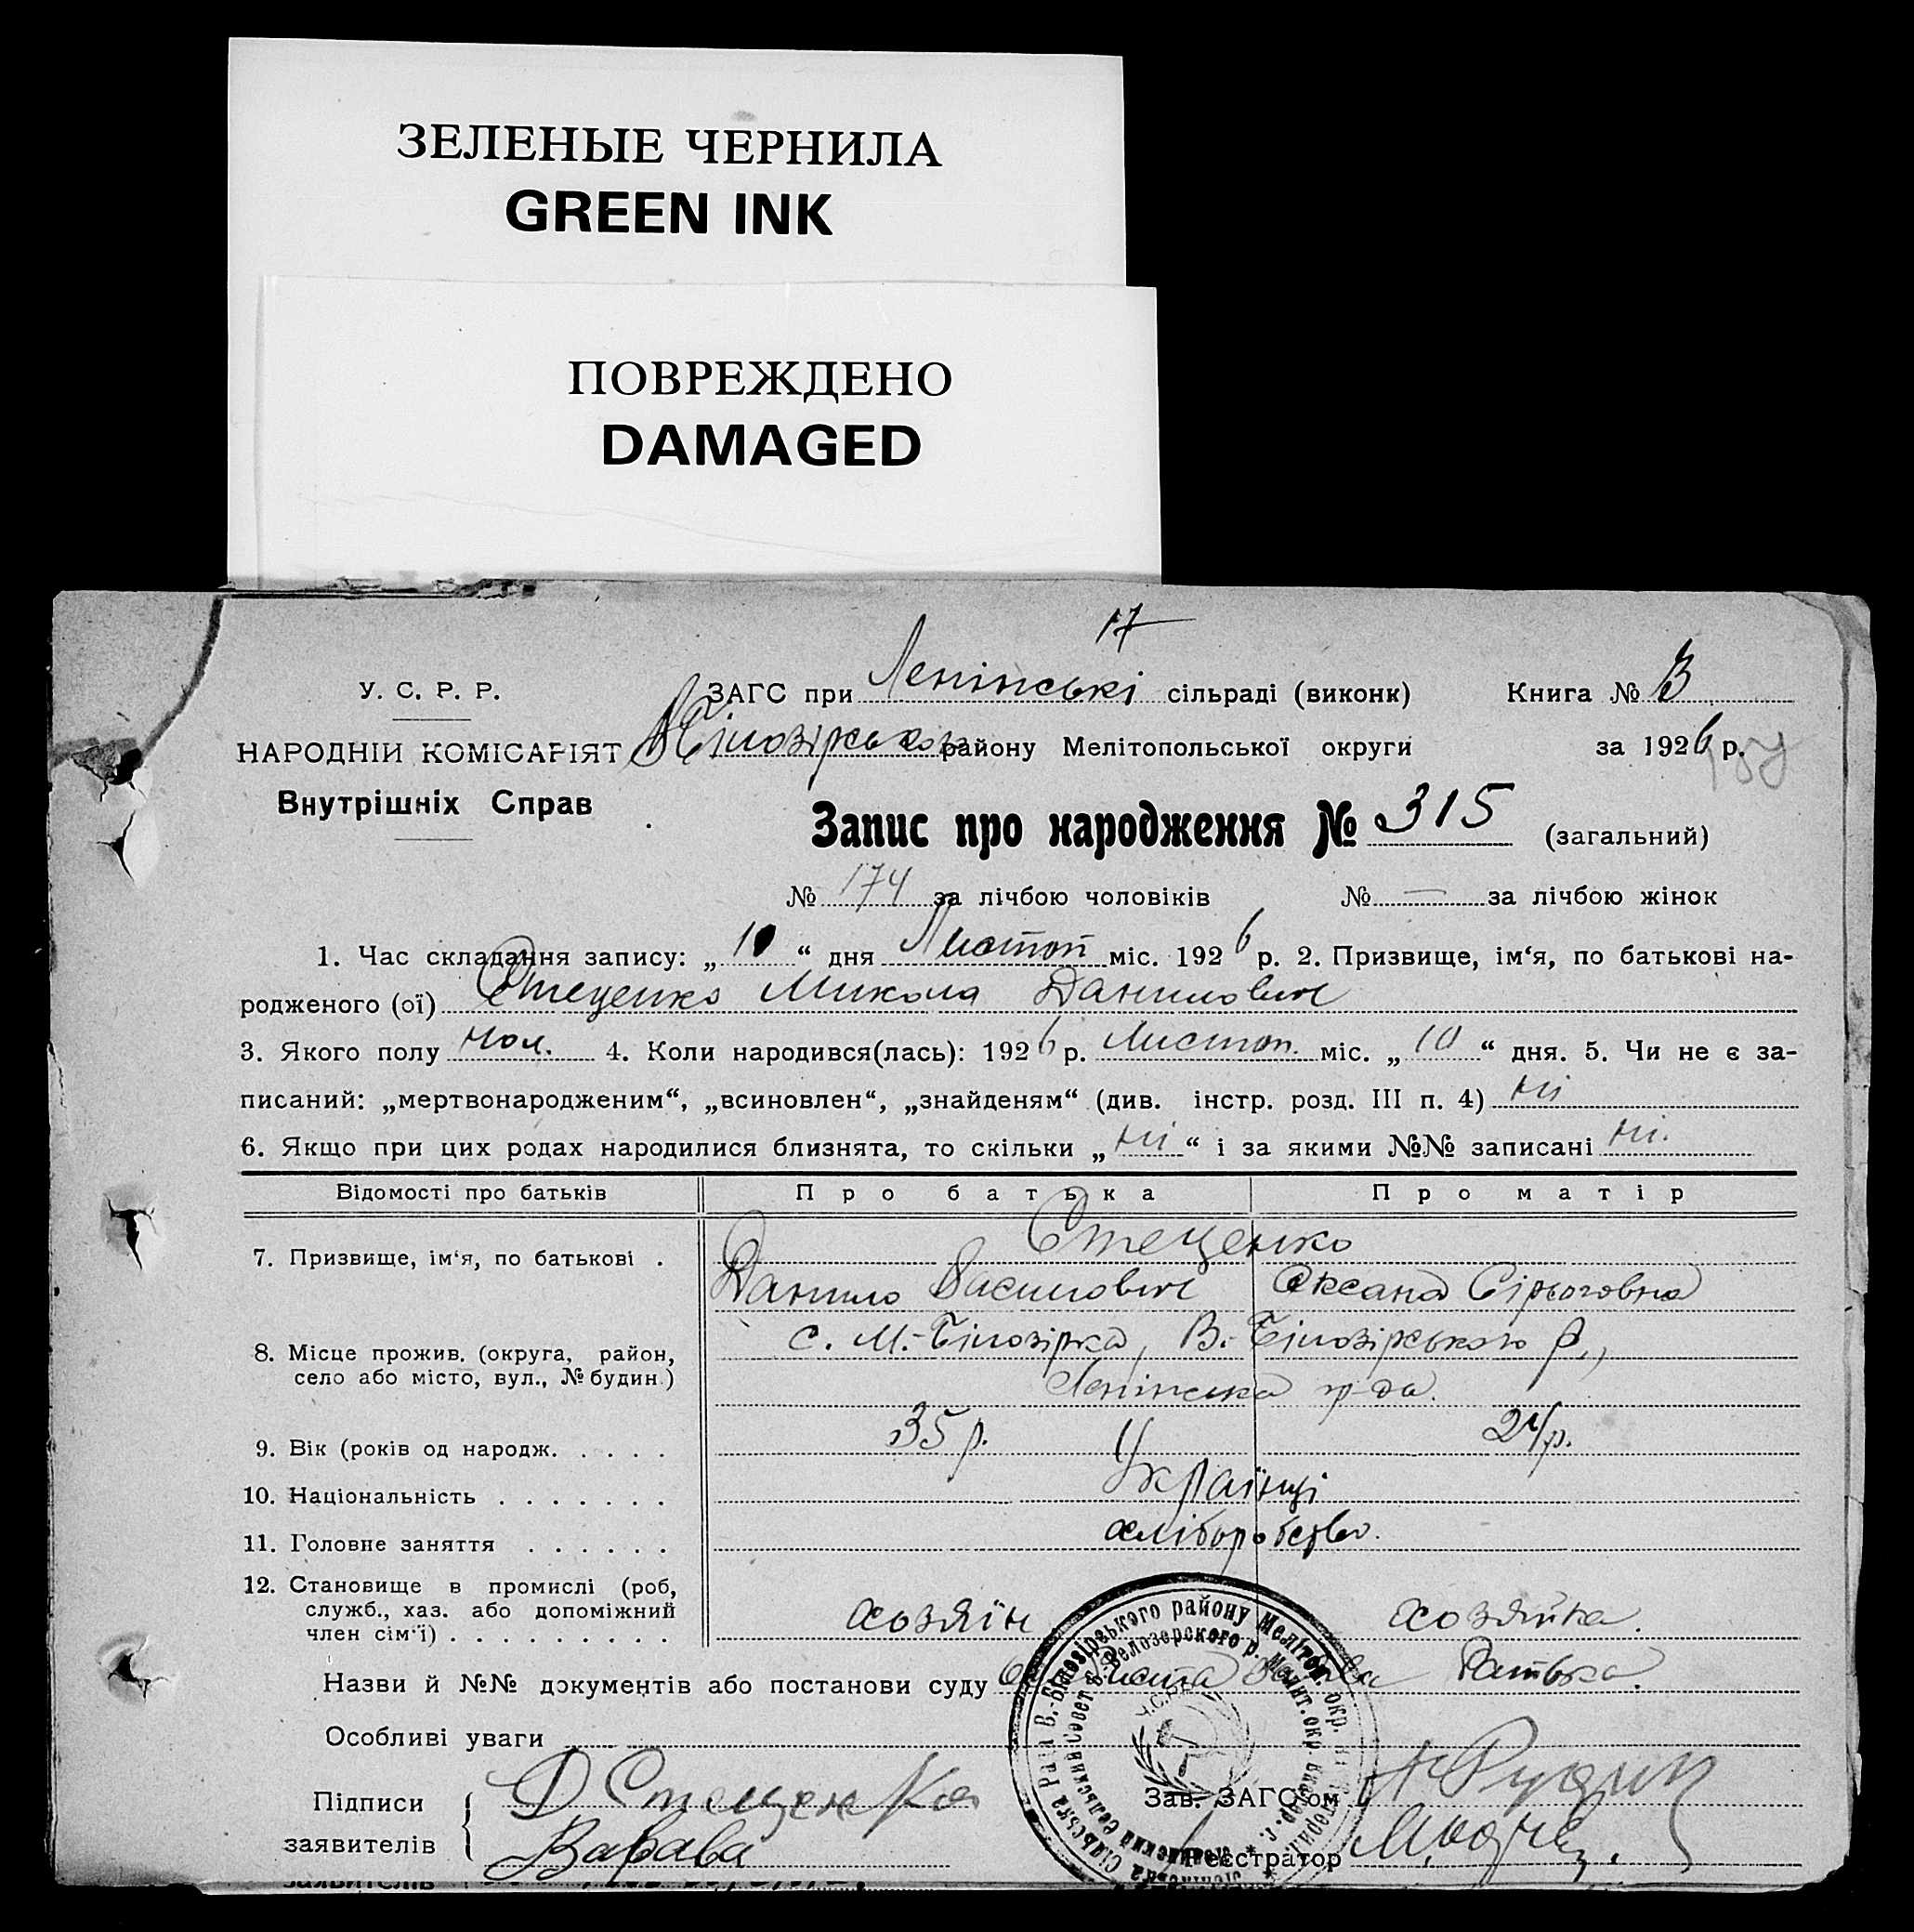 ЗЕЛЕНЫЕ ЧЕРНИЛА
GREEN INK
ПОВРЕЖДЕНО
DAMAGED
17
У. С. Р. Р.
ЗАГС при Ленінські сільраді (виконк) Книга № В
НАРОДНІЙ КОМІСАРІЯТ Білозірського району Мелітопольської округи за 1926 р.
Внутрішніх Справ
Запис про народження № 315 (загальний)
№ 174 за лічбою чоловіків № — за лічбою жінок
1. Час складання запису: „10“ дня Листоп міс. 1926 р. 2. Призвище, ім‘я, по батькові на-
родженого (ої) Стеценко Микола Данилович
3. Якого полу чол. 4. Коли народився(лась): 1926 р. Листоп. міс. „10“ дня. 5. Чи не є за-
писаний: „мертвонародженим“, „всиновлен“, „знайденям“ (див. інстр. розд. III п. 4) ні
6. Якщо при цих родах народилися близнята, то скільки „ні“ і за якими №№ записані ні.
Відомості про батьків Про батька Про матір
7. Призвище, ім‘я, по батькові . Стеценко
Данило Василович Оксана Сірьоговна
8. Місце прожив. (округа, район, с. М.-Білозірка, В.-Білозірського р.,
село або місто, вул., № будин.) Ленінська
9. Вік (років од народж. . . . . 35 р. 24 р.
10. Національність . . . . . . . Українці
11. Головне заняття . . . . . . хліборобство.
12. Становище в промислі (роб,
служб., хаз. або допоміжний
член сім‘ї) . . . . . . . . . хозяїн хозяйка.
Назви й №№ документів або постанови суду Батька.
Особливі уваги
Підписи Д Стеценко Зав. ЗАГС‘ом
заявителів Варава Реєстратор
В.-Білозірського району Мелітоп. окр.
В.-Белозерского р. Мелит. окр.
заявителів